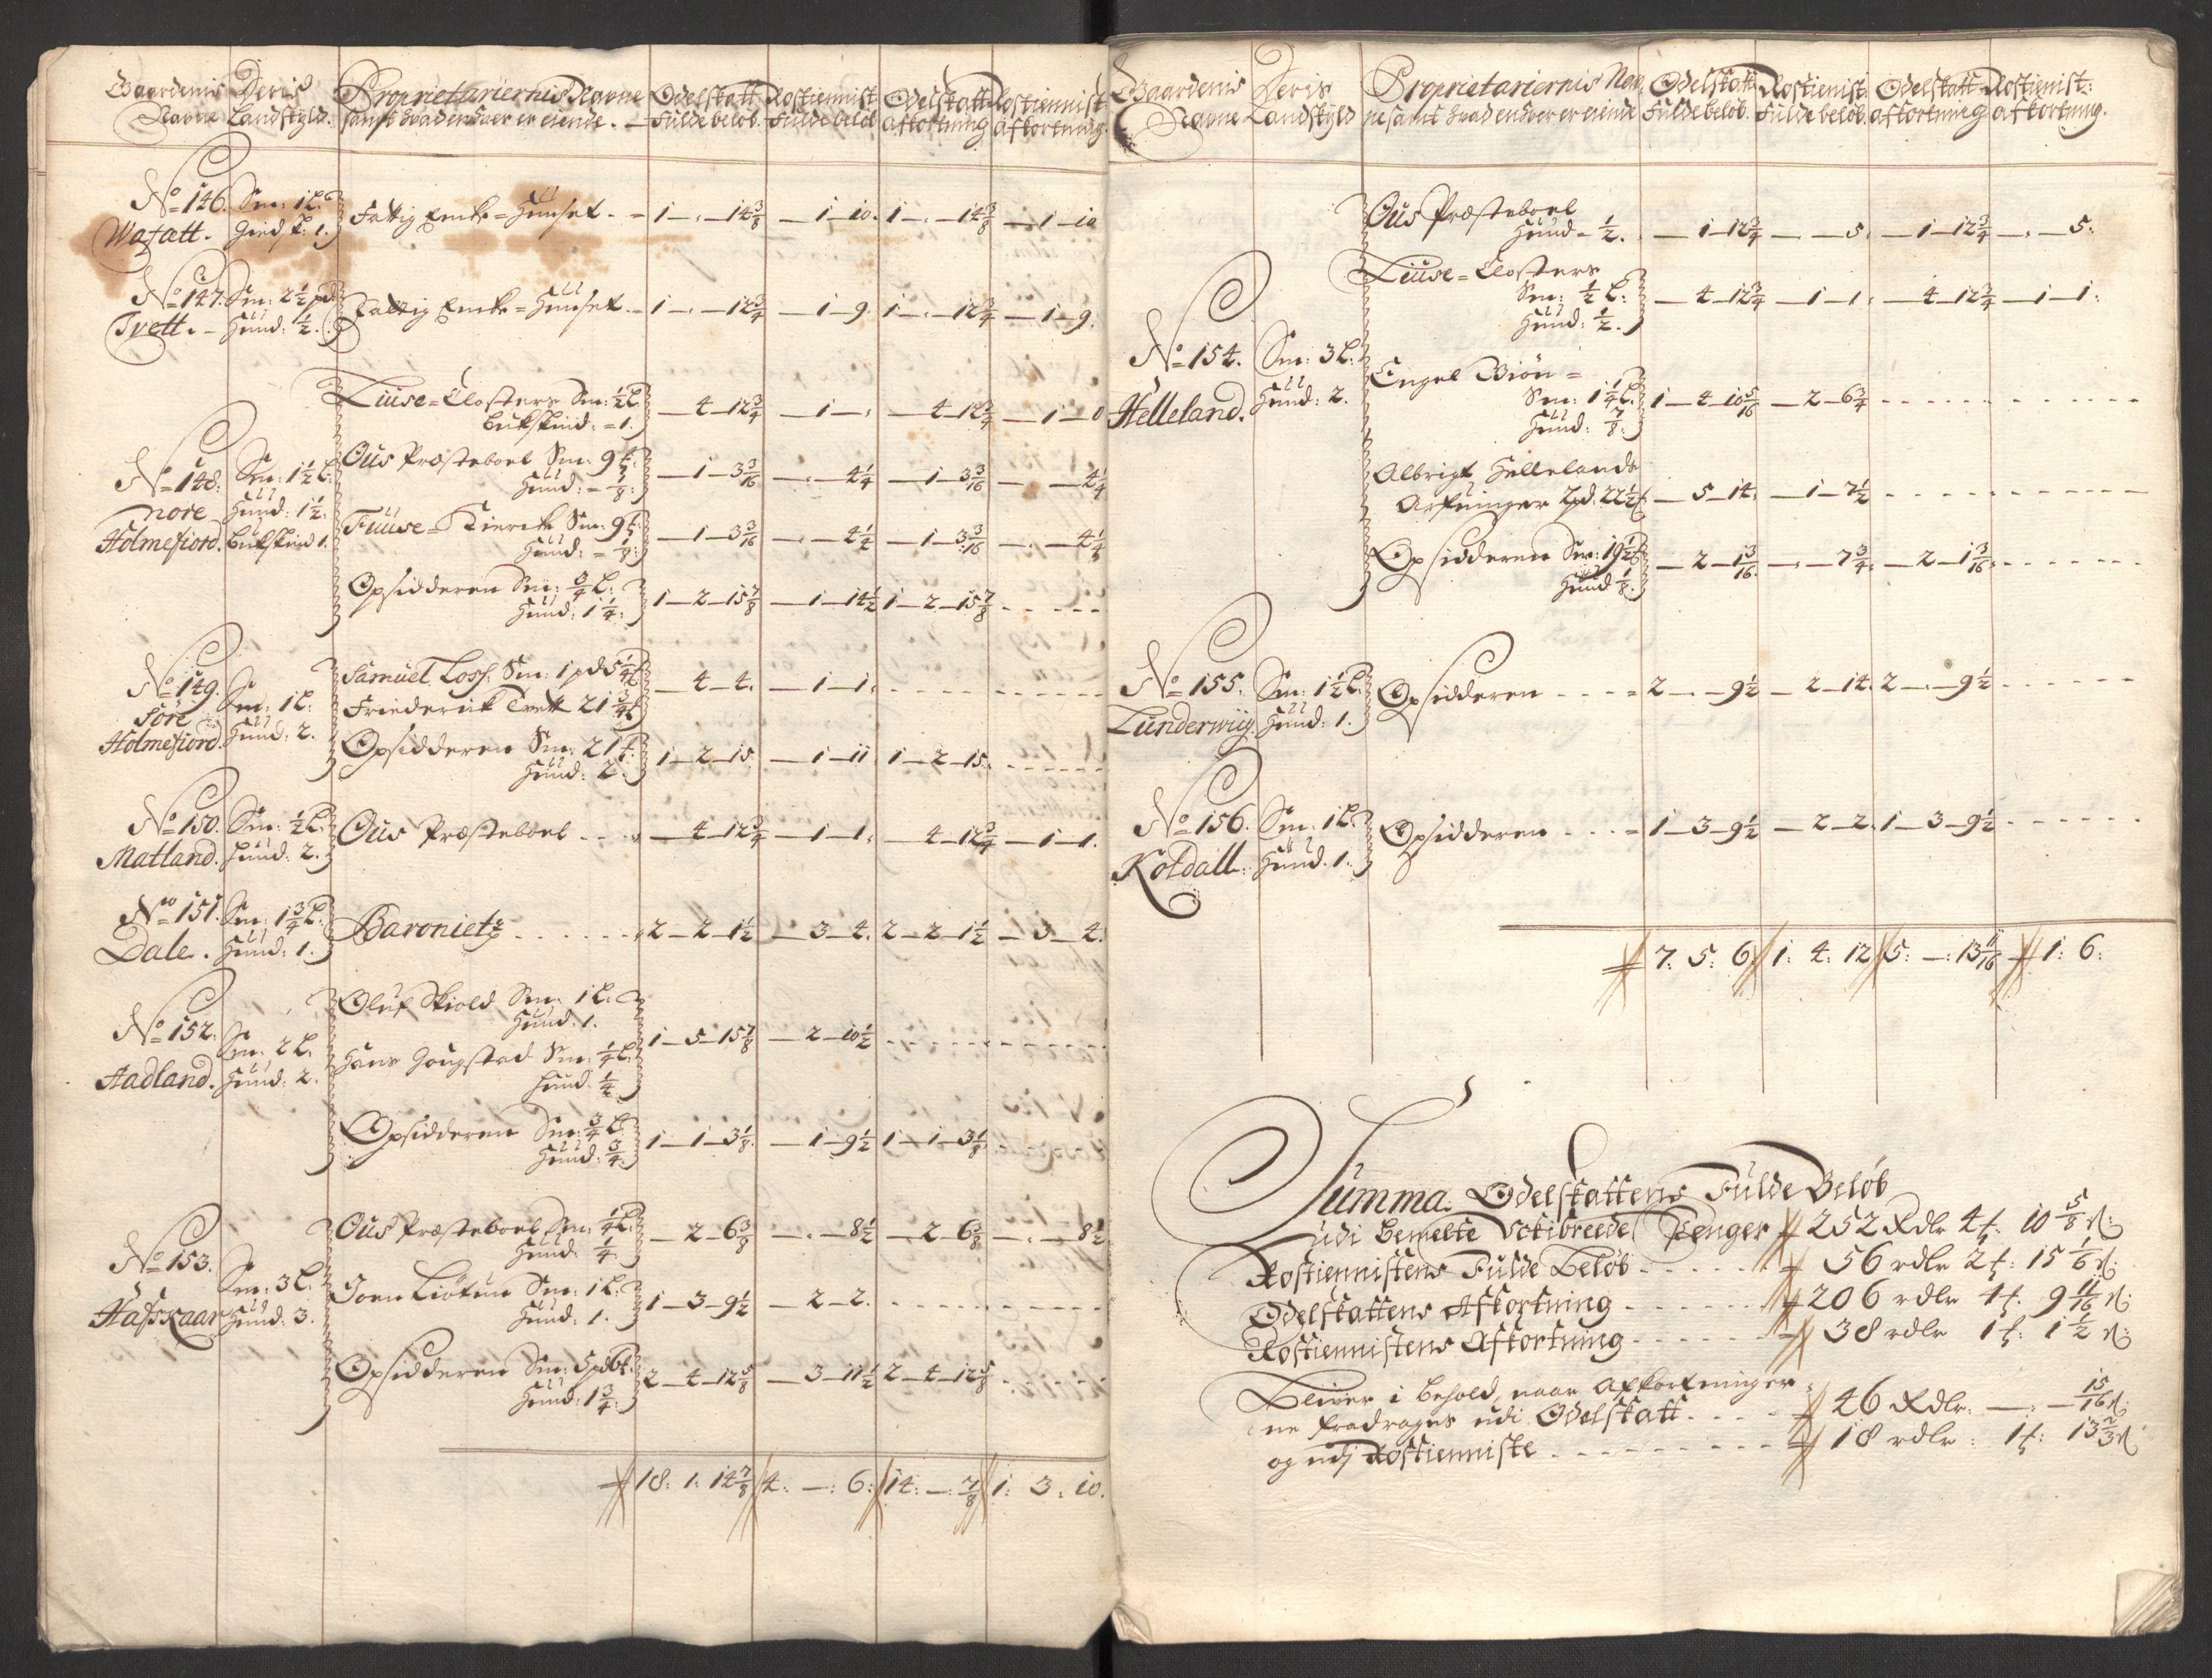 Gaardenis Deris Proprietariernis Nafne Odelskatt Rostiennist Odelskatt Rostiennist
Nafne Landskyld. samt hvad enhver er eiende. Fulde beløb. Fulde beløb Afkortning Afkortning
No 146. Sm: 1 L:
Wafatt. Giedsk: 1. Fattig Enke-Huuset. 1 – – 14 3/8 – 1 – 10. 1 – – 14 3/8 – 1 – 10
No 147. Sm: 2 1/2 pd
Tvett. Huud: 1/2. Fattig Enke-Huuset 1 – – 12 3/4 – 1 – 9. 1 – – 12 3/4 – 1 – 9.
Liuse-Closters Sm: 1/2 L:
Bukskind: 1. – 4 – 12 3/4 – 1 – : – 4 – 12 3/4 – 1 – 0
No 148. Sm: 1 1/2 L: Ous Præsteboel Sm: 9
Huud: 1/8: – 1 – 3 3/16 – – 4 1/4 – 1 – 3 3/16 – – 4 1/4
nore Huud: 1 1/2:
Holmefiord. Bukskind 1. Fuuse-Kierke Sm: 9
Huud: 1/8: – 1 – 3 3/16 – – 4 1/4 – 1 – 3 3/16 – – 4 1/4
Opsidderen Sm: 3/4 L:
Huud: 1 1/4: 1 – 2 – 15 7/8 – 1 – 14 1/2 1 – 2 – 15 7/8
No 149. Samuel Loss: Sm: 1 pd 5 1/4
Søre Sm: 1 L: Friederich Tvett 21 3/4 – 4 – 4. – 1 – 1:
Holmefiord. Huud: 2. Opsidderen Sm: 21
Huud: 2. 1 – 2 – 15 – 1 – 11 1 – 2 – 15.
No 150. Sm: 1/2 L:
Matland. Huud: 2. Ous Præsteboel – 4 – 12 3/4 – 1 – 1: – 4 – 12 3/4 – 1 – 1.
No 151. Sm: 1 3/4 L:
Dale. Huud: 1. Baronietz 2 – 2 – 1 1/2 – 3 – 4. 2 – 2 – 1 1/2 – 3 – 4.
Oluf Skiold Sm: 1 L:
Huud: 1.
No 152. Sm: 2 L. Hans Gougstad Sm: 1/4 L:
Aadland. Huud: 2. Huud: 1/4 1 – 5 – 15 7/8 – 2 – 10 1/2
Opsidderen Sm: 3/4 L:
Huud: 3/4: 1 – 1 – 3 1/8 – 1 – 9 1/2 1 – 1 – 3 1/8
Ous Præsteboel Sm: 1/4 L:
Huud: 1/4: – 2 – 6 3/8 – – 8 1/2 – 2 – 6 3/8 – – 8 1/2
No 153. Sm: 3 L: Joen Sm: 1 L:
Hafskaar Huud: 3. Huud: 1. 1 – 3 – 9 1/2 – 2 – 2.
Opsidderen Sm: 5 pd 6
Huud: 1 3/4: 2 – 4 – 12 5/8 – 3 – 11 1/2 2 – 4 – 12 5/8
18: 1: 14 7/8 4: –: 6: 14: –: 7/8 1: 3: 10.
Gaardenis Deris Proprietariernis Naf- Odelskatt Rostienist: Odelskatt Rostienist:
Nafne Landskyld ne samt hvad enhver er eiende Fulde beløb. Fulde beløb. Afkortning Afkortning.
Ous Præsteboel
Huud 1/2. – 1 – 12 3/4 – – 5. – 1 – 12 3/4 – – 5:
Liuse-Closters
Sm: 1/2 L:
Huud: 1/2. – 4 – 12 3/4 – 1 – 1: – 4 – 12 3/4 – 1 – 1:
No 154. Sm: 3 L: Engel Biøn
Helleland. Huud: 2. Sm: 1 1/4 L:
Huud: 7/8: 1 – 4 – 10 5/16 – 2 – 6 3/4
Albrigt Hellelands
Arfuinger 2 pd. 22 1/2 – 5 – 14: – 1 – 7 1/2
Opsidderen Sm: 19 1/2
Huud 1/8. – 2 – 1 3/16 – – 7 3/4: – 2 – 1 3/16:
No 155. Sm: 1 1/2 L:
Lunderwiig. Huud: 1. Opsidderen 2 – – 9 1/2 – 2 – 14. 2 – – 9 1/2
No 156. Sm: 1 L:
Koldall. Huud. 1. Opsidderen 1 – 3 – 9 1/2 – 2 – 2. 1 – 3 – 9 1/2
7: 5: 6: 1: 4: 12 5: –: 13 11/16 1: 6:
Summa Odelskattens Fulde Beløb
udi bemelte Schibreede Penger 252 Rdlr 4 : 10 5/8 s:
Rostiennistens Fulde Beløb 56 rdlr 2 : 15 1/6 s:
Odelskattens Afkortning 206 rdlr 4 : 9 11/16 s:
Rostiennistens Afkortning 38 rdlr 1 : 1 1/2 s:
Bliver i behold naar Afkortninger
ne fradragis udi Odelskatt 46 Rdlr: –: – 15/16 s:
og udj Rostienniste 18 rdlr: 1 : 13 2/3 s: